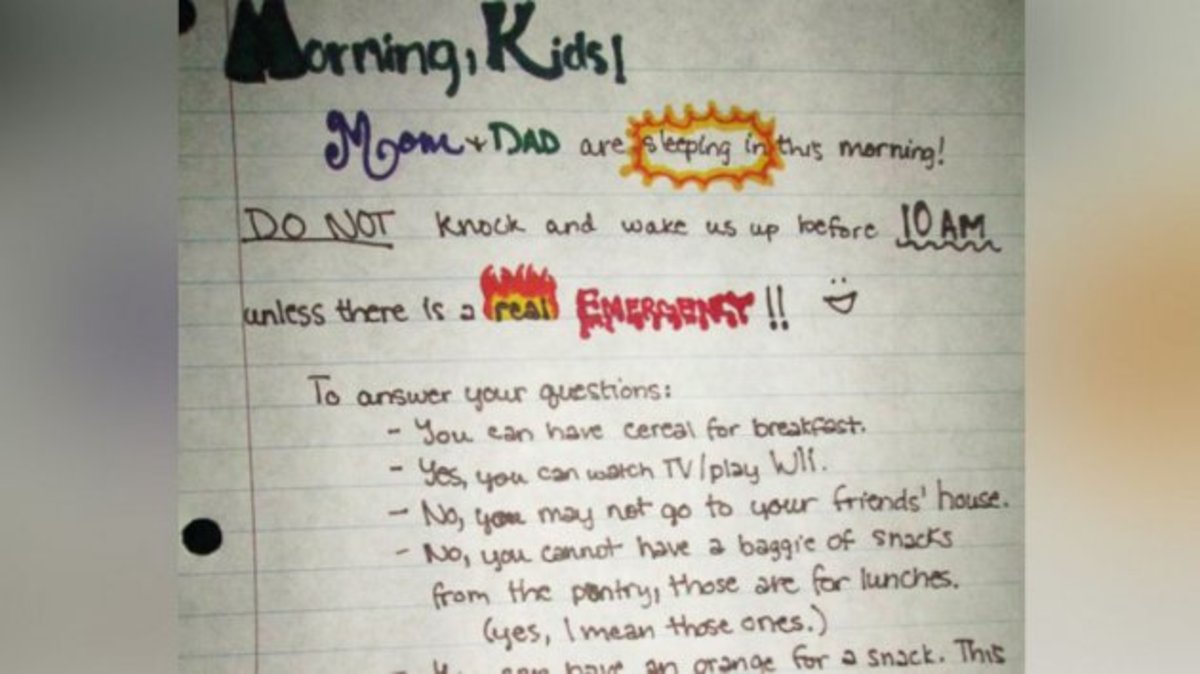 Morning, Kids!
Mom + DAD are sleeping in this morning!
DO NOT knock and wake us up before 10 AM
unless there is a real EMERGENCY!! :D
To answer your questions:
- You can have cereal for breakfast.
- Yes, you can watch TV/play WII.
- No, you may not go to your friends' house.
- No, you cannot have a baggie of snacks
from the pantry, those are for lunches.
(yes, I mean those ones.)
- You can have an orange for a snack. This